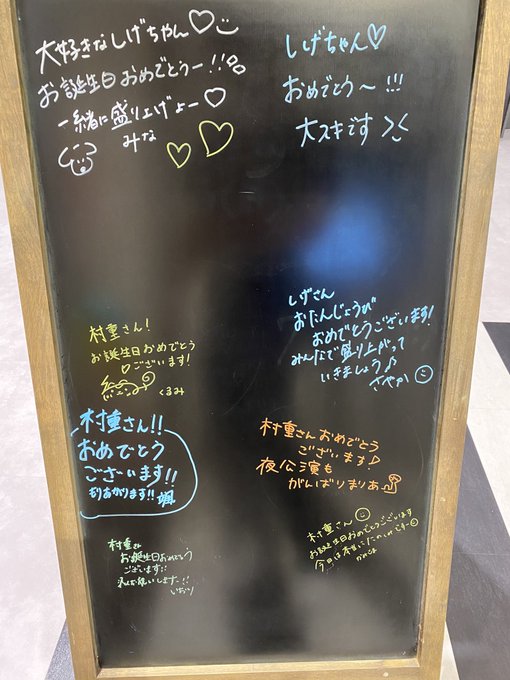 大好きなしげちゃん♡
お誕生日おめでとうー!!
一緒に盛り上げよー♡
みな
しげちゃん♡
おめでとう〜!!!
大スキです
しげさん
おたんじょうび
おめでとうございます!
みんなで盛り上がって
いきましょう♪
さやか
村重さん!
お誕生日おめでとう
♡ございます!
くるみ
村重さん!!
おめでとう
ございます!!
もりあがります!!
村重さんおめでとう
ございます♪
夜公演も
がんばりまりあ
村重さん
お誕生日おめでとうございます
今日は本当に
村重さん
お誕生日おめでとう
ございます!!
いおり